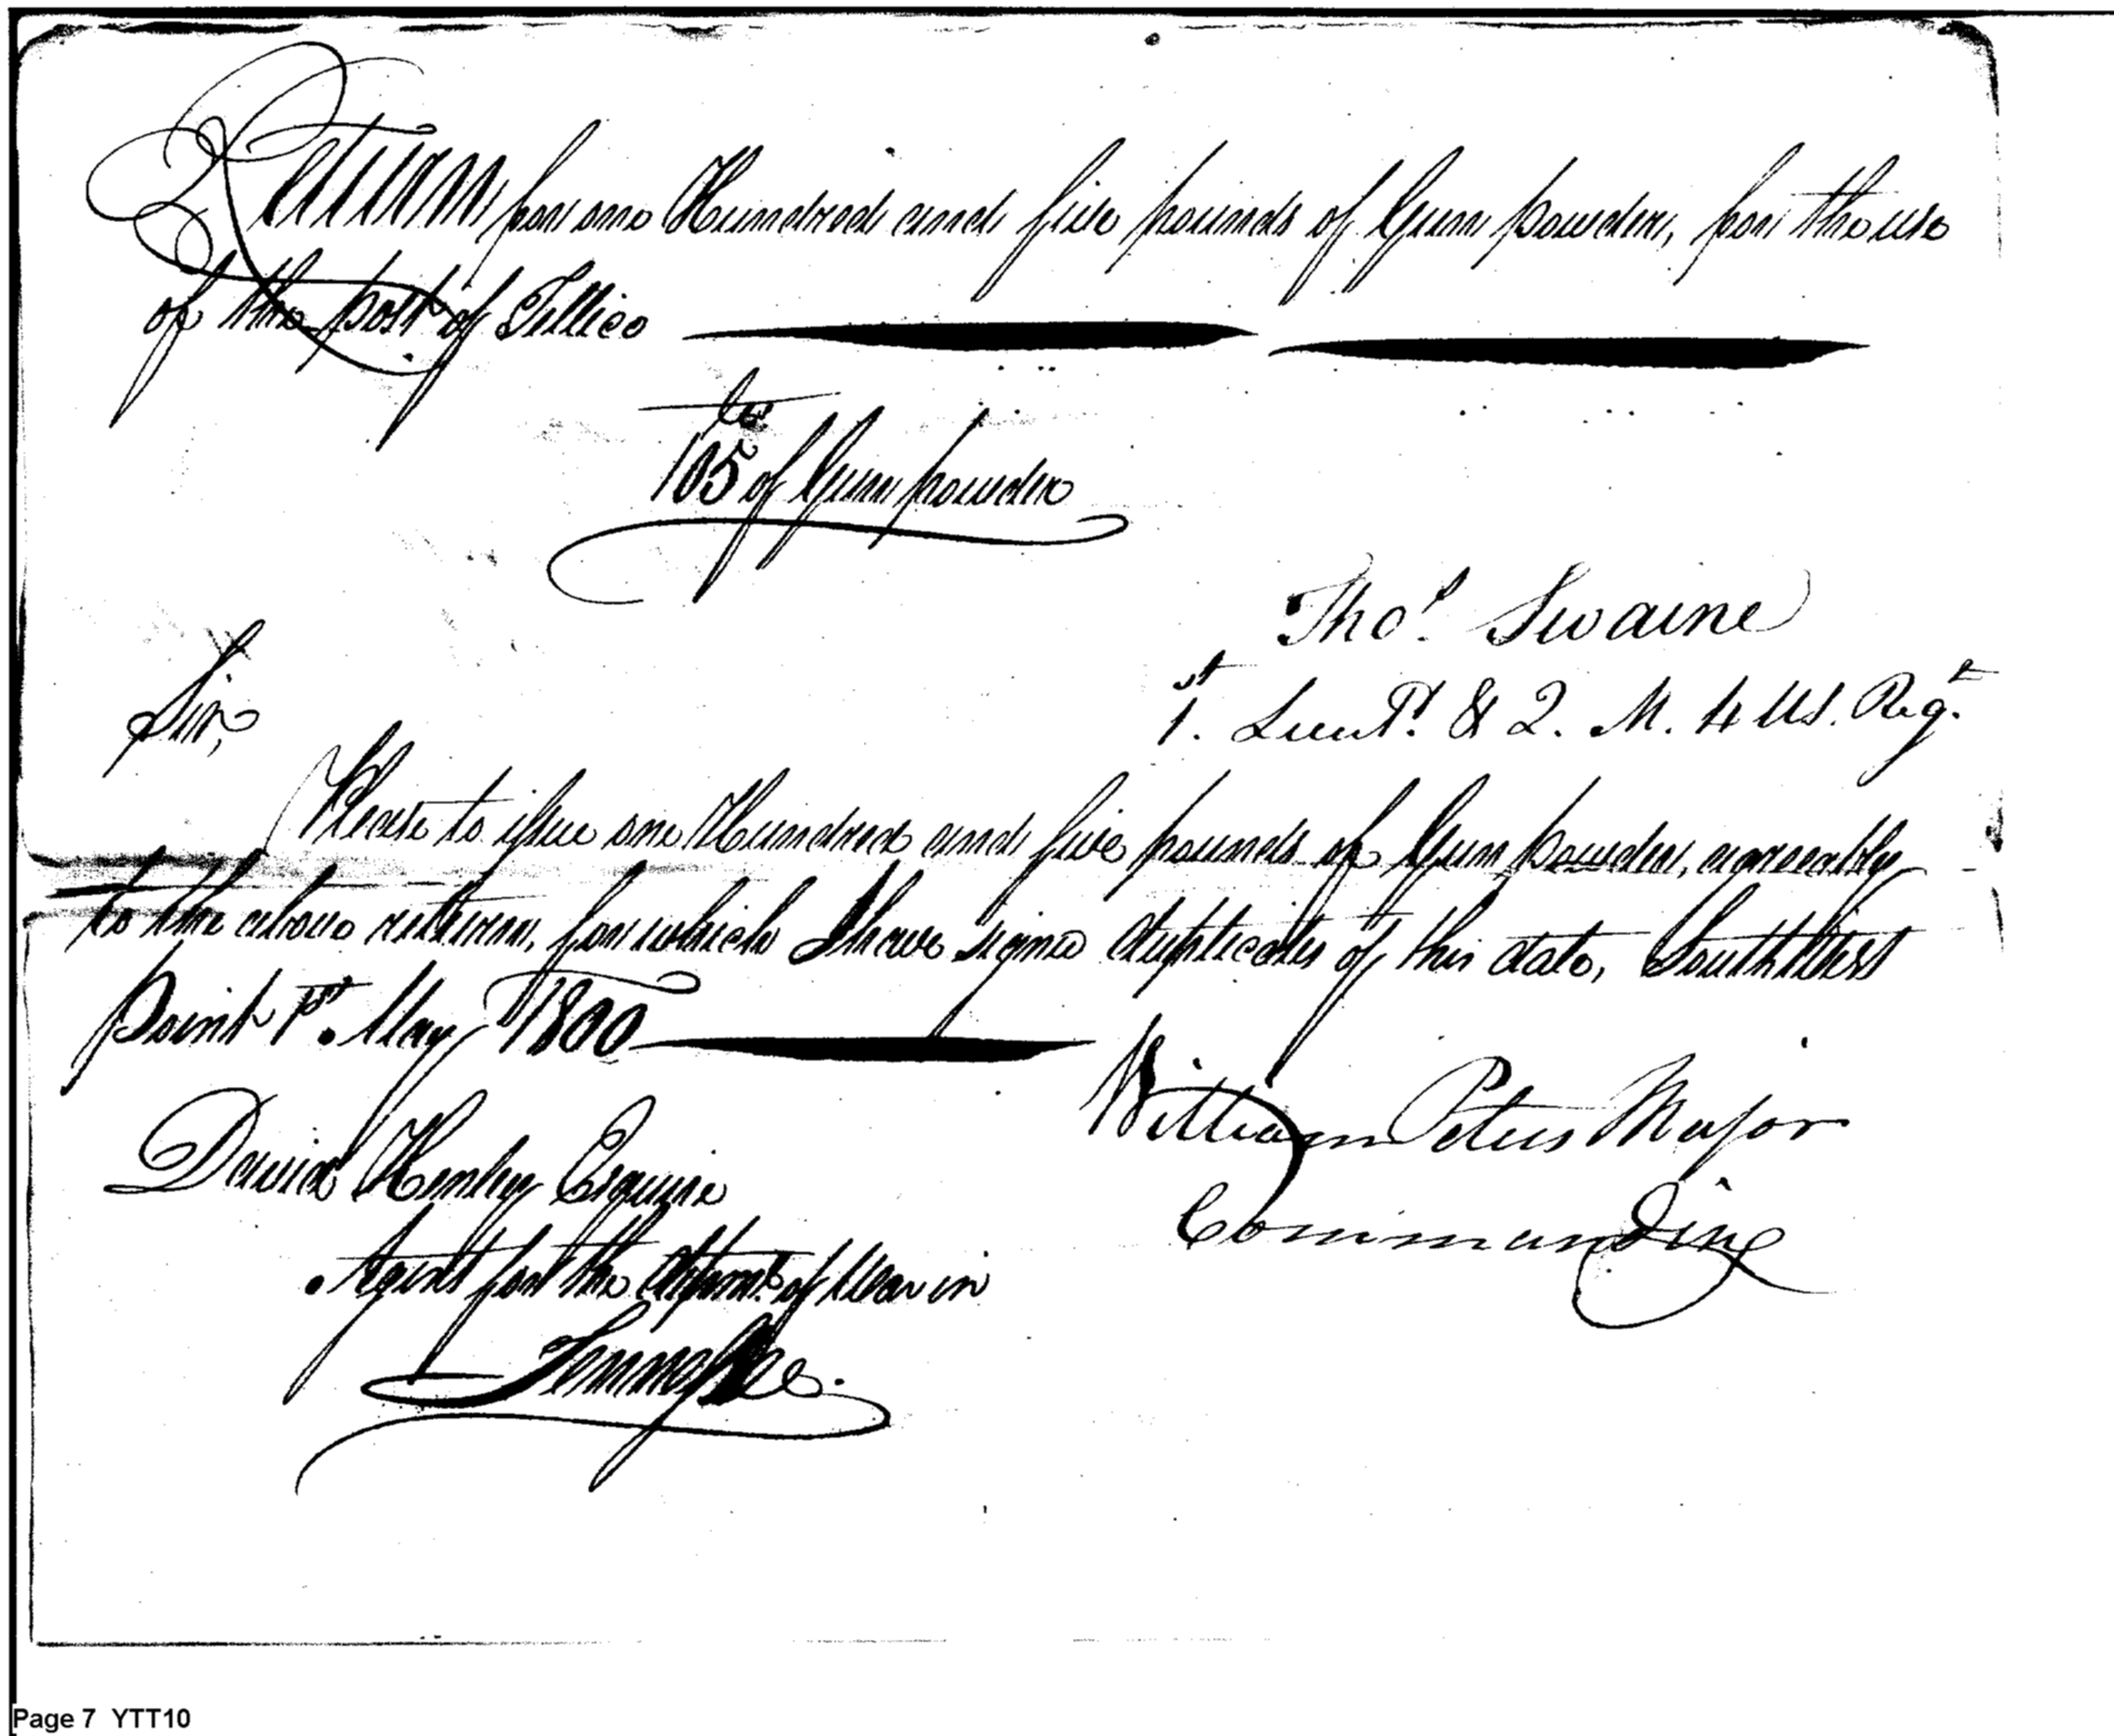 Return for one Hundred and five pounds of Gun powder, for the use
of the post of Tellico
lbs
105 of Gun powder
Thos. Swaine
1.st Lieut. & Q. M. 4 US. Regt.
Sir,
Please to issue one Hundred and five pounds of Gun powder, agreeably
to the above return, for which I have signd duplicates of this date, South West
point 1st. May 1800
William Peters Major
Commanding
David Henley Esquire
Agent for the departmt. of War in
Tennessee.
Page 7 YTT10